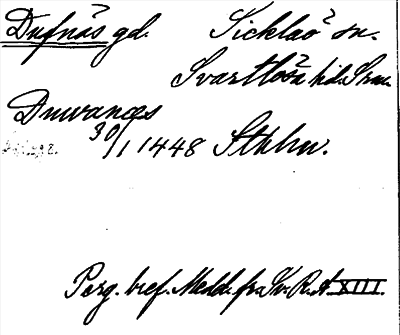 Dufnäs gd. Sicklaö sn.
Svartlösa hd. Srm.
Duwanæs
30/1 1448 Sthlm.
Perg. bref. Medd. fr. Sv. R. A. XIII.